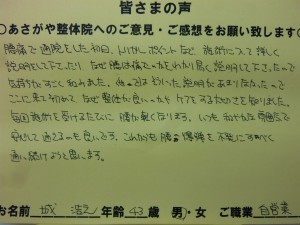 皆さまの声
○あさがや整体院へのご意見・ご感想をお願い致します○
腰痛で通院をした初日、トリガーポイントなど施術について詳しく
説明をして下さったり、なぜ腰が痛くなったかわかり易く説明して下さったので
気持ちがすごく和みました。他ではそういった説明があまりなかったので
ここに来て初めてなぜ整体が良いのかケアをする大切さを知りました。
毎回施術を受けるたびに腰が軽くなります。いつも和やかな雰囲気で
安心して通えるのも良いです。これからも腰の爆弾を不発にすべく
通い続けようと思います。
お名前 城 浩之 年齢 43 歳 男・女 ご職業 自営業